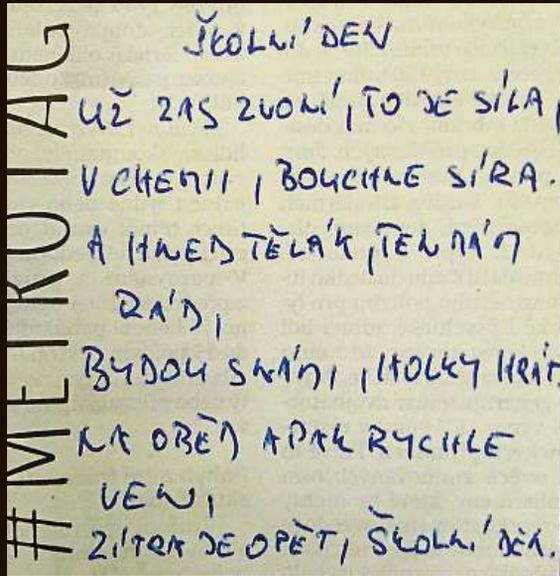 #METROTAG
ŠKOLNÍ DEN
UŽ ZAS ZVONÍ, TO JE SÍLA,
V CHEMII, BOUCHNE SÍRA.
A HNED TĚLÁK, TEN MÁM
RÁD,
BUDOU S NÁMI, HOLKY HRÁT
NA OBĚD A PAK RYCHLE
VEN,
ZÍTRA JE OPĚT, ŠKOLNÍ DEN.